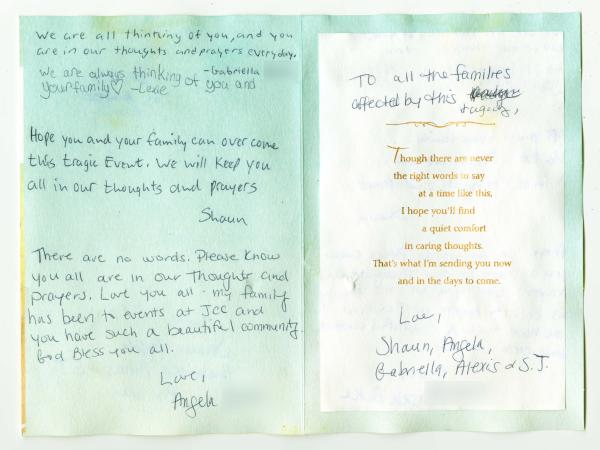 We are all thinking of you, and you
are in our thoughts and prayers everyday.
-Gabriella
We are always thinking of you and
your family♡ -Lexie
Hope you and your family can over come
this tragic Event. We will keep you
all in our thoughts and prayers
Shaun
There are no words. Please know
you all are in our thoughts and
prayers. Love you all - my family
has been to events at JCC and
you have such a beautiful community.
God Bless you all.
Love,
Angela
To all the families
affected by this
tragedy,
Though there are never
the right words to say
at a time like this,
I hope you'll find
a quiet comfort
in caring thoughts.
That's what I'm sending you now
and in the days to come.
Love,
Shaun, Angela,
Gabriella, Alexis & S.J.